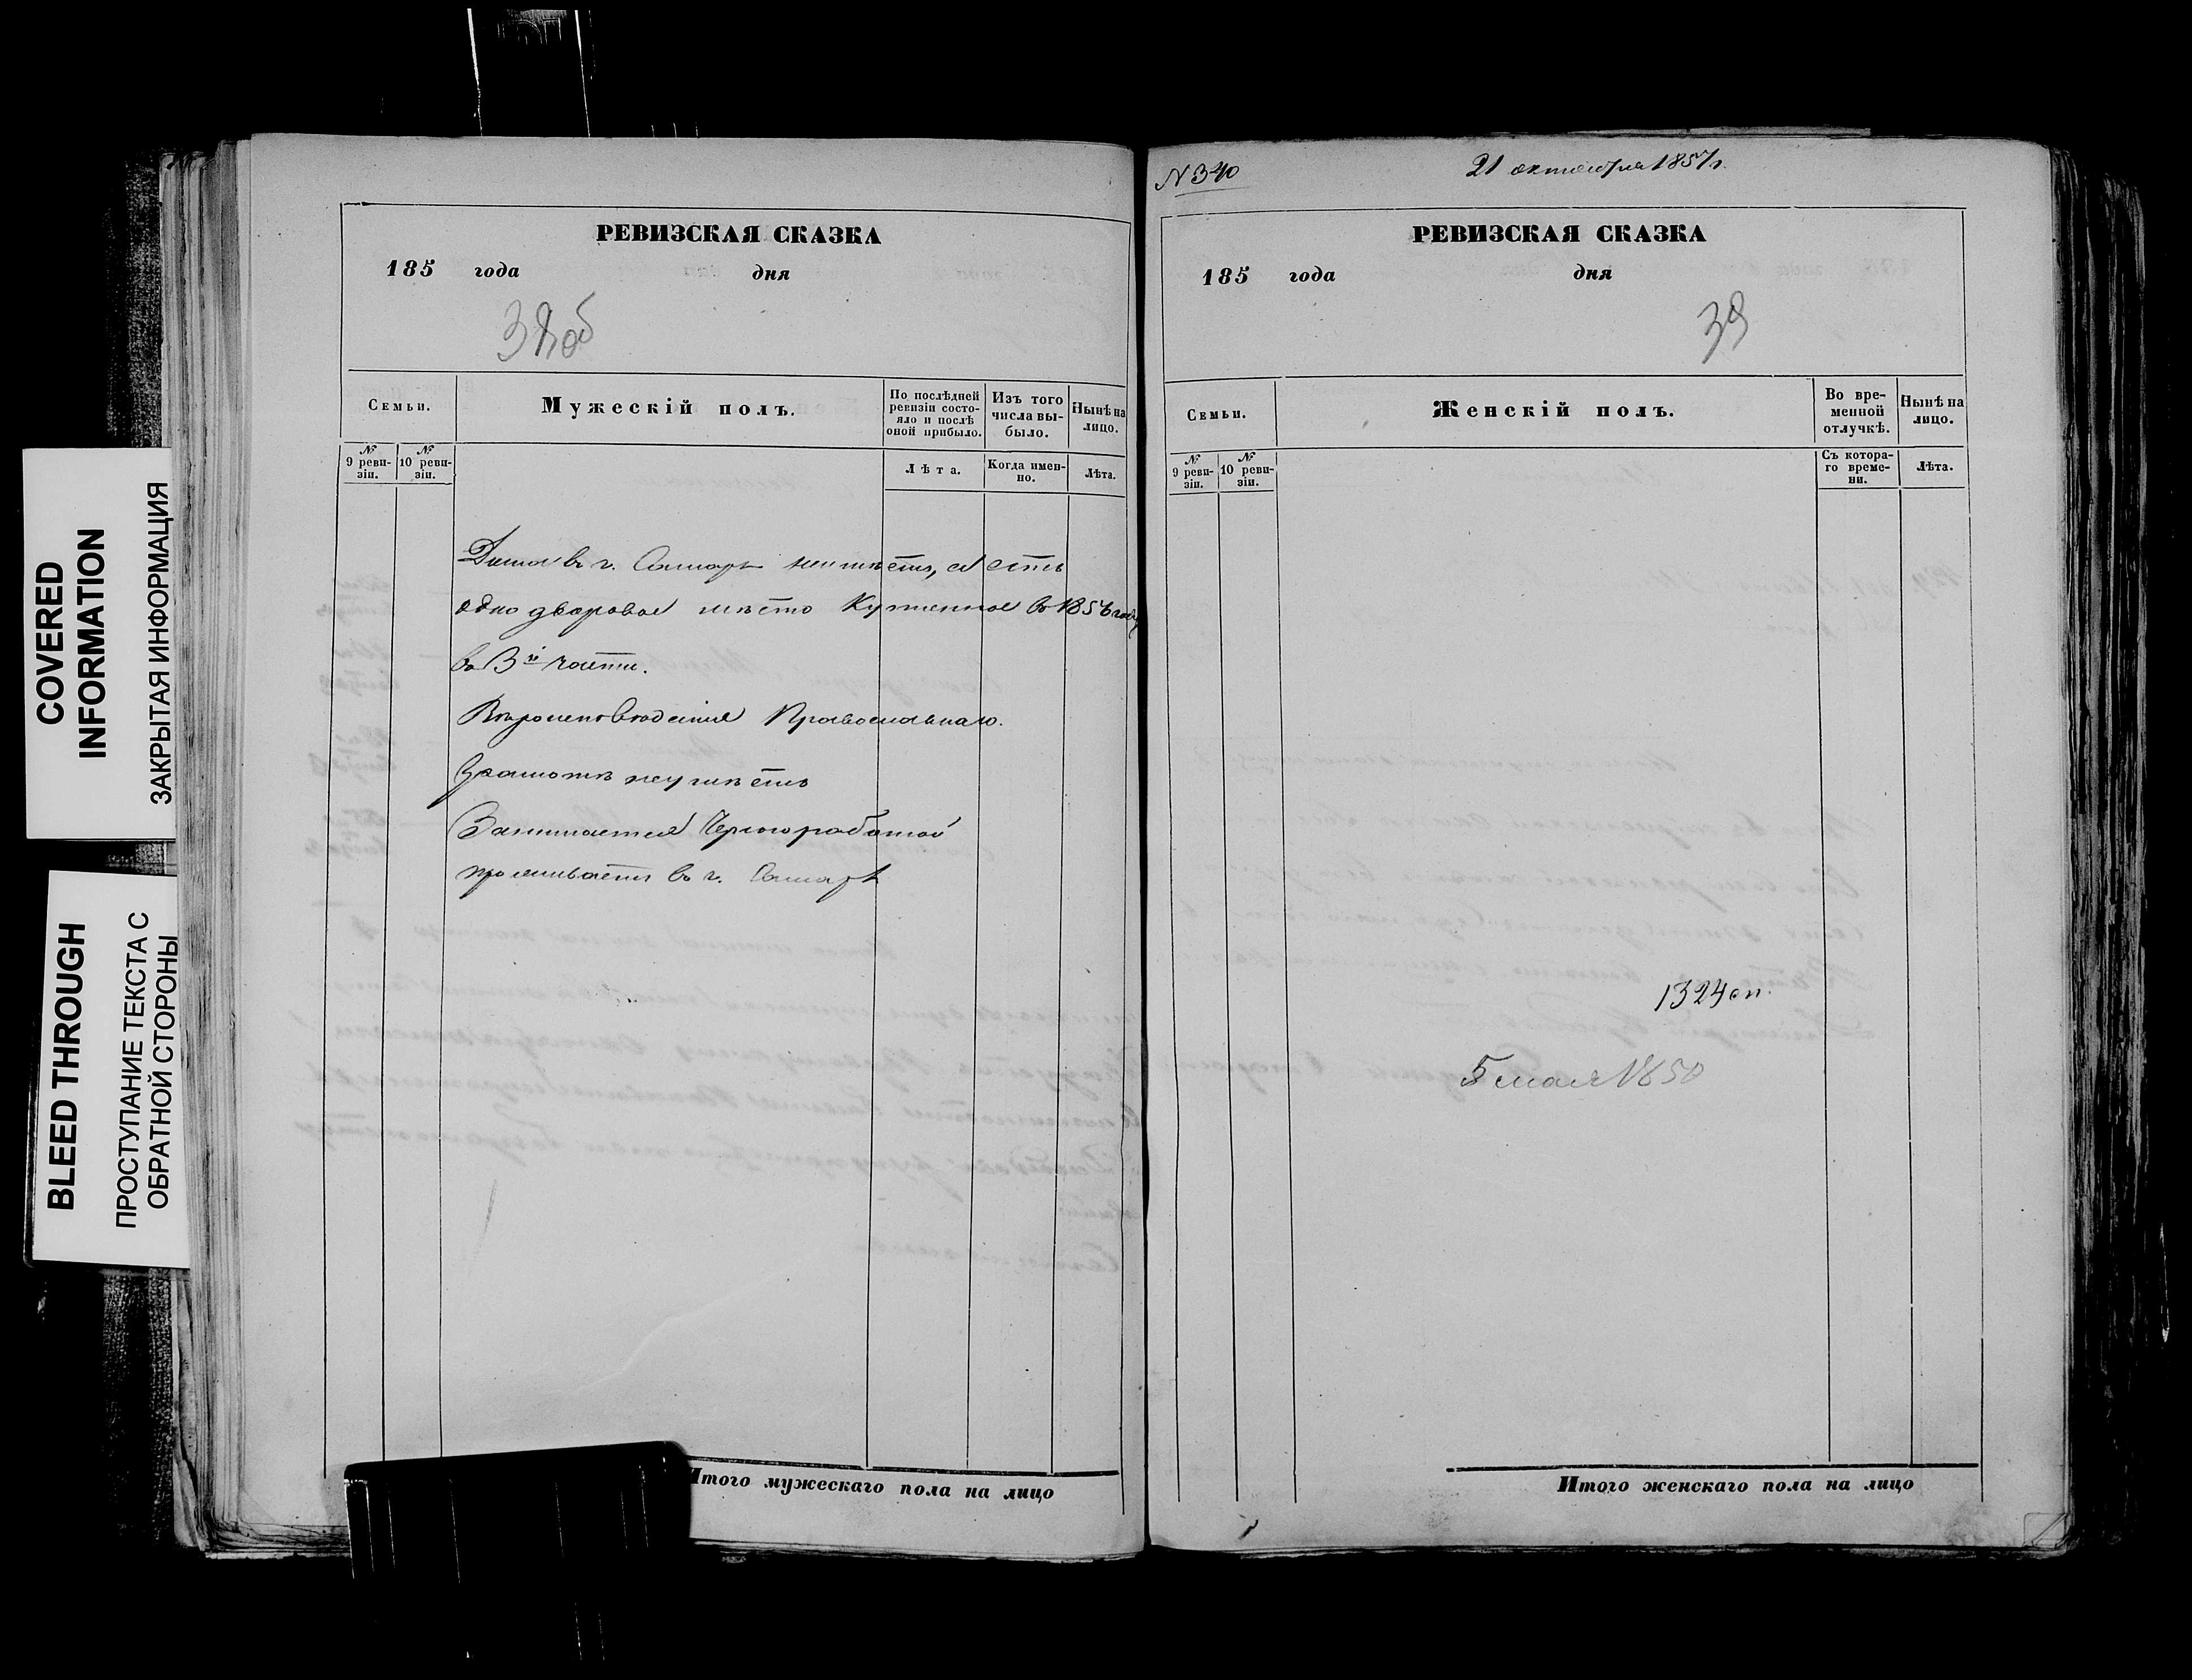 COVERED
INFORMATION
ЗАКРЫТАЯ ИНФОРМАЦИЯ
BLEED THROUGH
ПРОСТУПАНИЕ ТЕКСТА С
ОБРАТНОЙ СТОРОНЫ
РЕВИЗСКАЯ СКАЗКА
185 года дня
38об
Семьи.
Мужескій полъ.
По послѣдней
ревизіи состо-
яло и послѣ
оной прибыло.
Изъ того
числа вы-
было.
Нынѣ на
лицо.
№
9 реви-
зіи.
№
10 реви-
зіи.
Лѣта.
Когда имен-
но.
Лѣта.
Дома въ г. Самарѣ неимѣетъ, а есть
одно дворовое мѣсто Купленное въ 1856 году
въ 3й части.
Вѣроисповѣданія Православнаго.
Грамотѣ неумѣетъ
Занимается Черноработой
проживаетъ въ г. Самарѣ
Итого мужескаго пола на лицо
N 340
21 октября 1857 г.
РЕВИЗСКАЯ СКАЗКА
185 года дня
39
Семьи.
Женскій полъ.
Во вре-
менной
отлучкѣ.
Нынѣ на
лицо.
№
9 реви-
зіи.
№
10 реви-
зіи.
Съ котора-
го време-
ни.
Лѣта.
1324 сп.
5 мая 1850
Итого женскаго пола на лицо